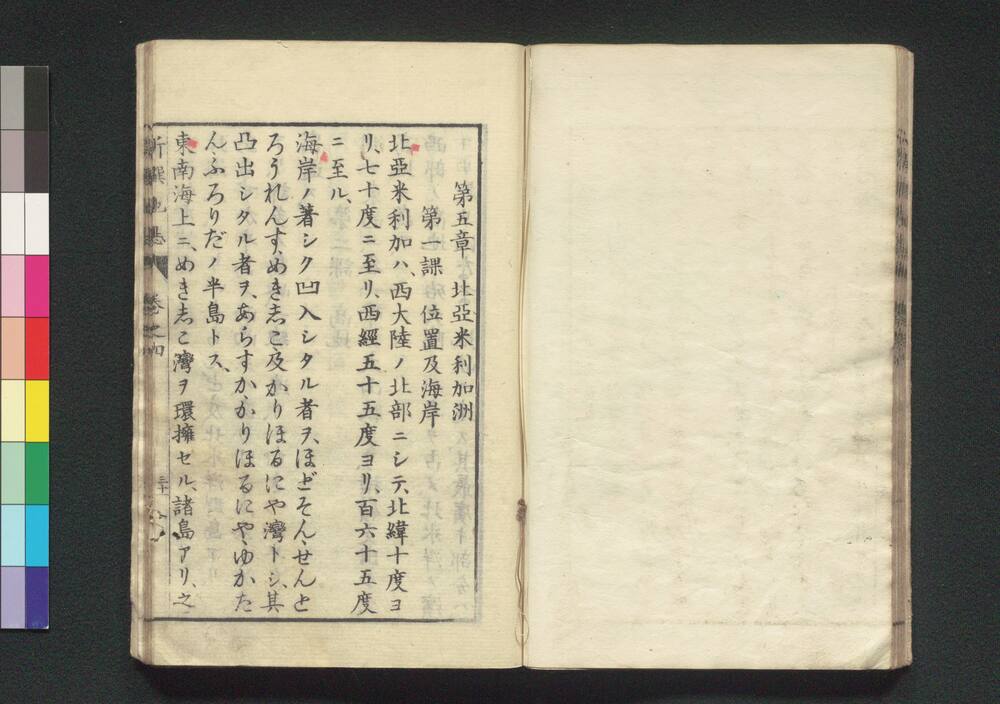 第五章 北亞米利加洲
第一課 位置及海岸
北亞米利加ハ、西大陸ノ北部ニシテ、北緯十度ヨ
リ、七十度ニ至リ、西經五十五度ヨリ、百六十五度
ニ至ル、
海岸ノ著シク凹入シタル者ヲ、ほどそん、せんと
ろうれんす、めき志こ、及かりほるにや灣トシ、其
凸出シタル者ヲ、あらすか、かりほるにや、ゆかた
ん、ふろりだノ半島トス、
東南海上ニ、めき志こ灣ヲ環擁セル、諸島アリ、之
新撰地誌 卷之四 三十